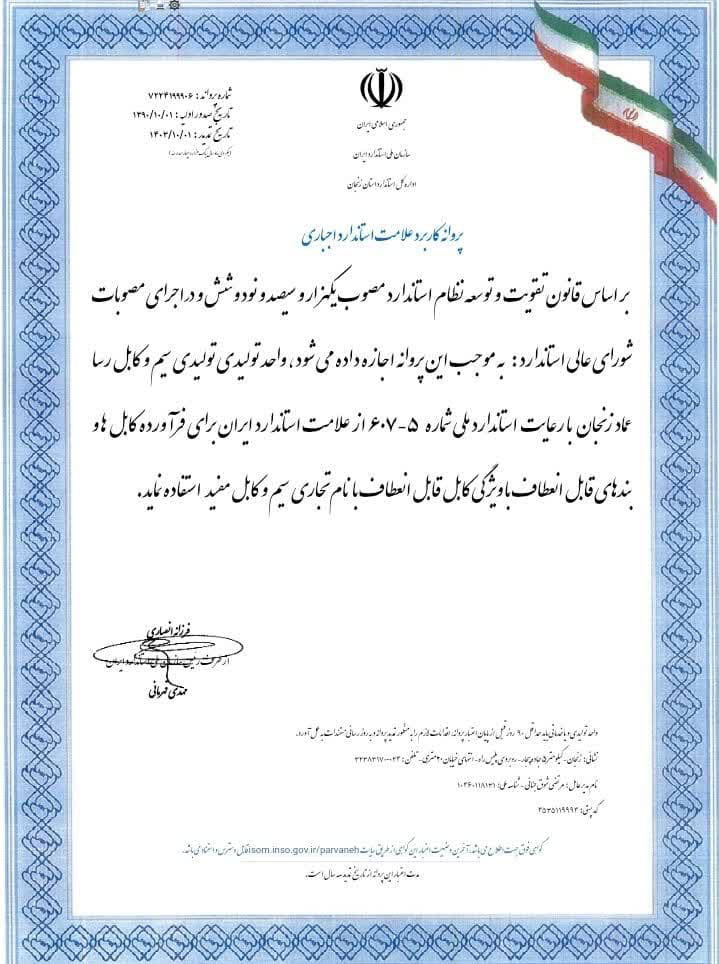 شماره پروانه : ۷۲۲۴۱۹۹۹۰۶
تاریخ صدور اولیه : ۱۳۹۰/۱۰/۰۱
تاریخ تمدید : ۱۴۰۳/۱۰/۰۱
جمهوری اسلامی ایران
سازمان ملی استاندارد ایران
اداره کل استاندارد استان زنجان
پروانه کاربرد علامت استاندارد اجباری
بر اساس قانون تقویت و توسعه نظام استاندارد مصوب یکهزار و سیصد و نود و شش و در اجرای مصوبات
شورای عالی استاندارد : به موجب این پروانه اجازه داده می شود، واحد تولیدی تولیدی سیم و کابل رسا
عماد زنجان با رعایت استاندارد ملی شماره ۵-۶۰۷ از علامت استاندارد ایران برای فرآورده کابل ها و
بندهای قابل انعطاف با ویژگی کابل قابل انعطاف با نام تجاری سیم و کابل مفید استفاده نماید.
فرزانه انصاری
از طرف رئیس سازمان ملی استاندارد ایران
مهدی قهرمانی
واحد تولیدی و یا خدماتی باید حداقل ۹۰ روز قبل از پایان اعتبار پروانه، اقدامات لازم را به منظور تمدید پروانه و به روز رسانی مستندات به عمل آورد.
نشانی : زنجان - کیلومتر ۵ جاده بیجار - روبروی پلیس راه - انتهای خیابان ۲۰ متری - تلفن : ۰۲۴-۳۲۳۸۳۱۷۰
نام مدیر عامل : مرتضی شوق جنانی - شناسه ملی : ۱۰۴۶۰۱۱۸۱۳۱
کد پستی : ۴۵۳۵۱۱۹۹۹۳
گواهی فوق جهت اطلاع می باشد، آخرین وضعیت اعتبار این گواهی از طریق سایت isom.inso.gov.ir/parvaneh قابل دسترس و استنادی باشد.
مدت اعتبار این پروانه از تاریخ تمدید سه سال است.